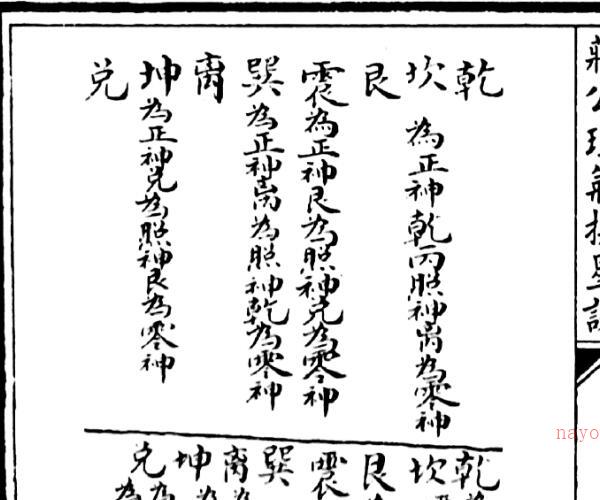 乾
坎為正神乾丙照神离為零神
艮
震為正神艮為照神兌為零神
巽為正神离為照神乾為零神
离
坤為正神兌為照神艮為零神
兌
乾
坎
艮
震
巽
离為
坤為
兌為
nayo